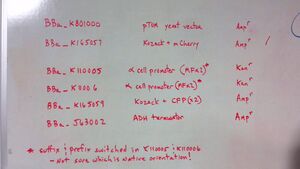 BBa_K801000 pTUM yeast vector Ampʳ
BBa_K165057 Kozack + mCherry Ampʳ
BBa_K110005 α cell promoter (MFα2)* Kanʳ
BBa_K0006 α cell promoter (MFα2)* Kanʳ
BBa_K165059 Kozack + CFP(x2) Ampʳ
BBa_J63002 ADH terminator Ampʳ
* suffix & prefix switched in K110005 & K110006
- Not sure which is native orientation!